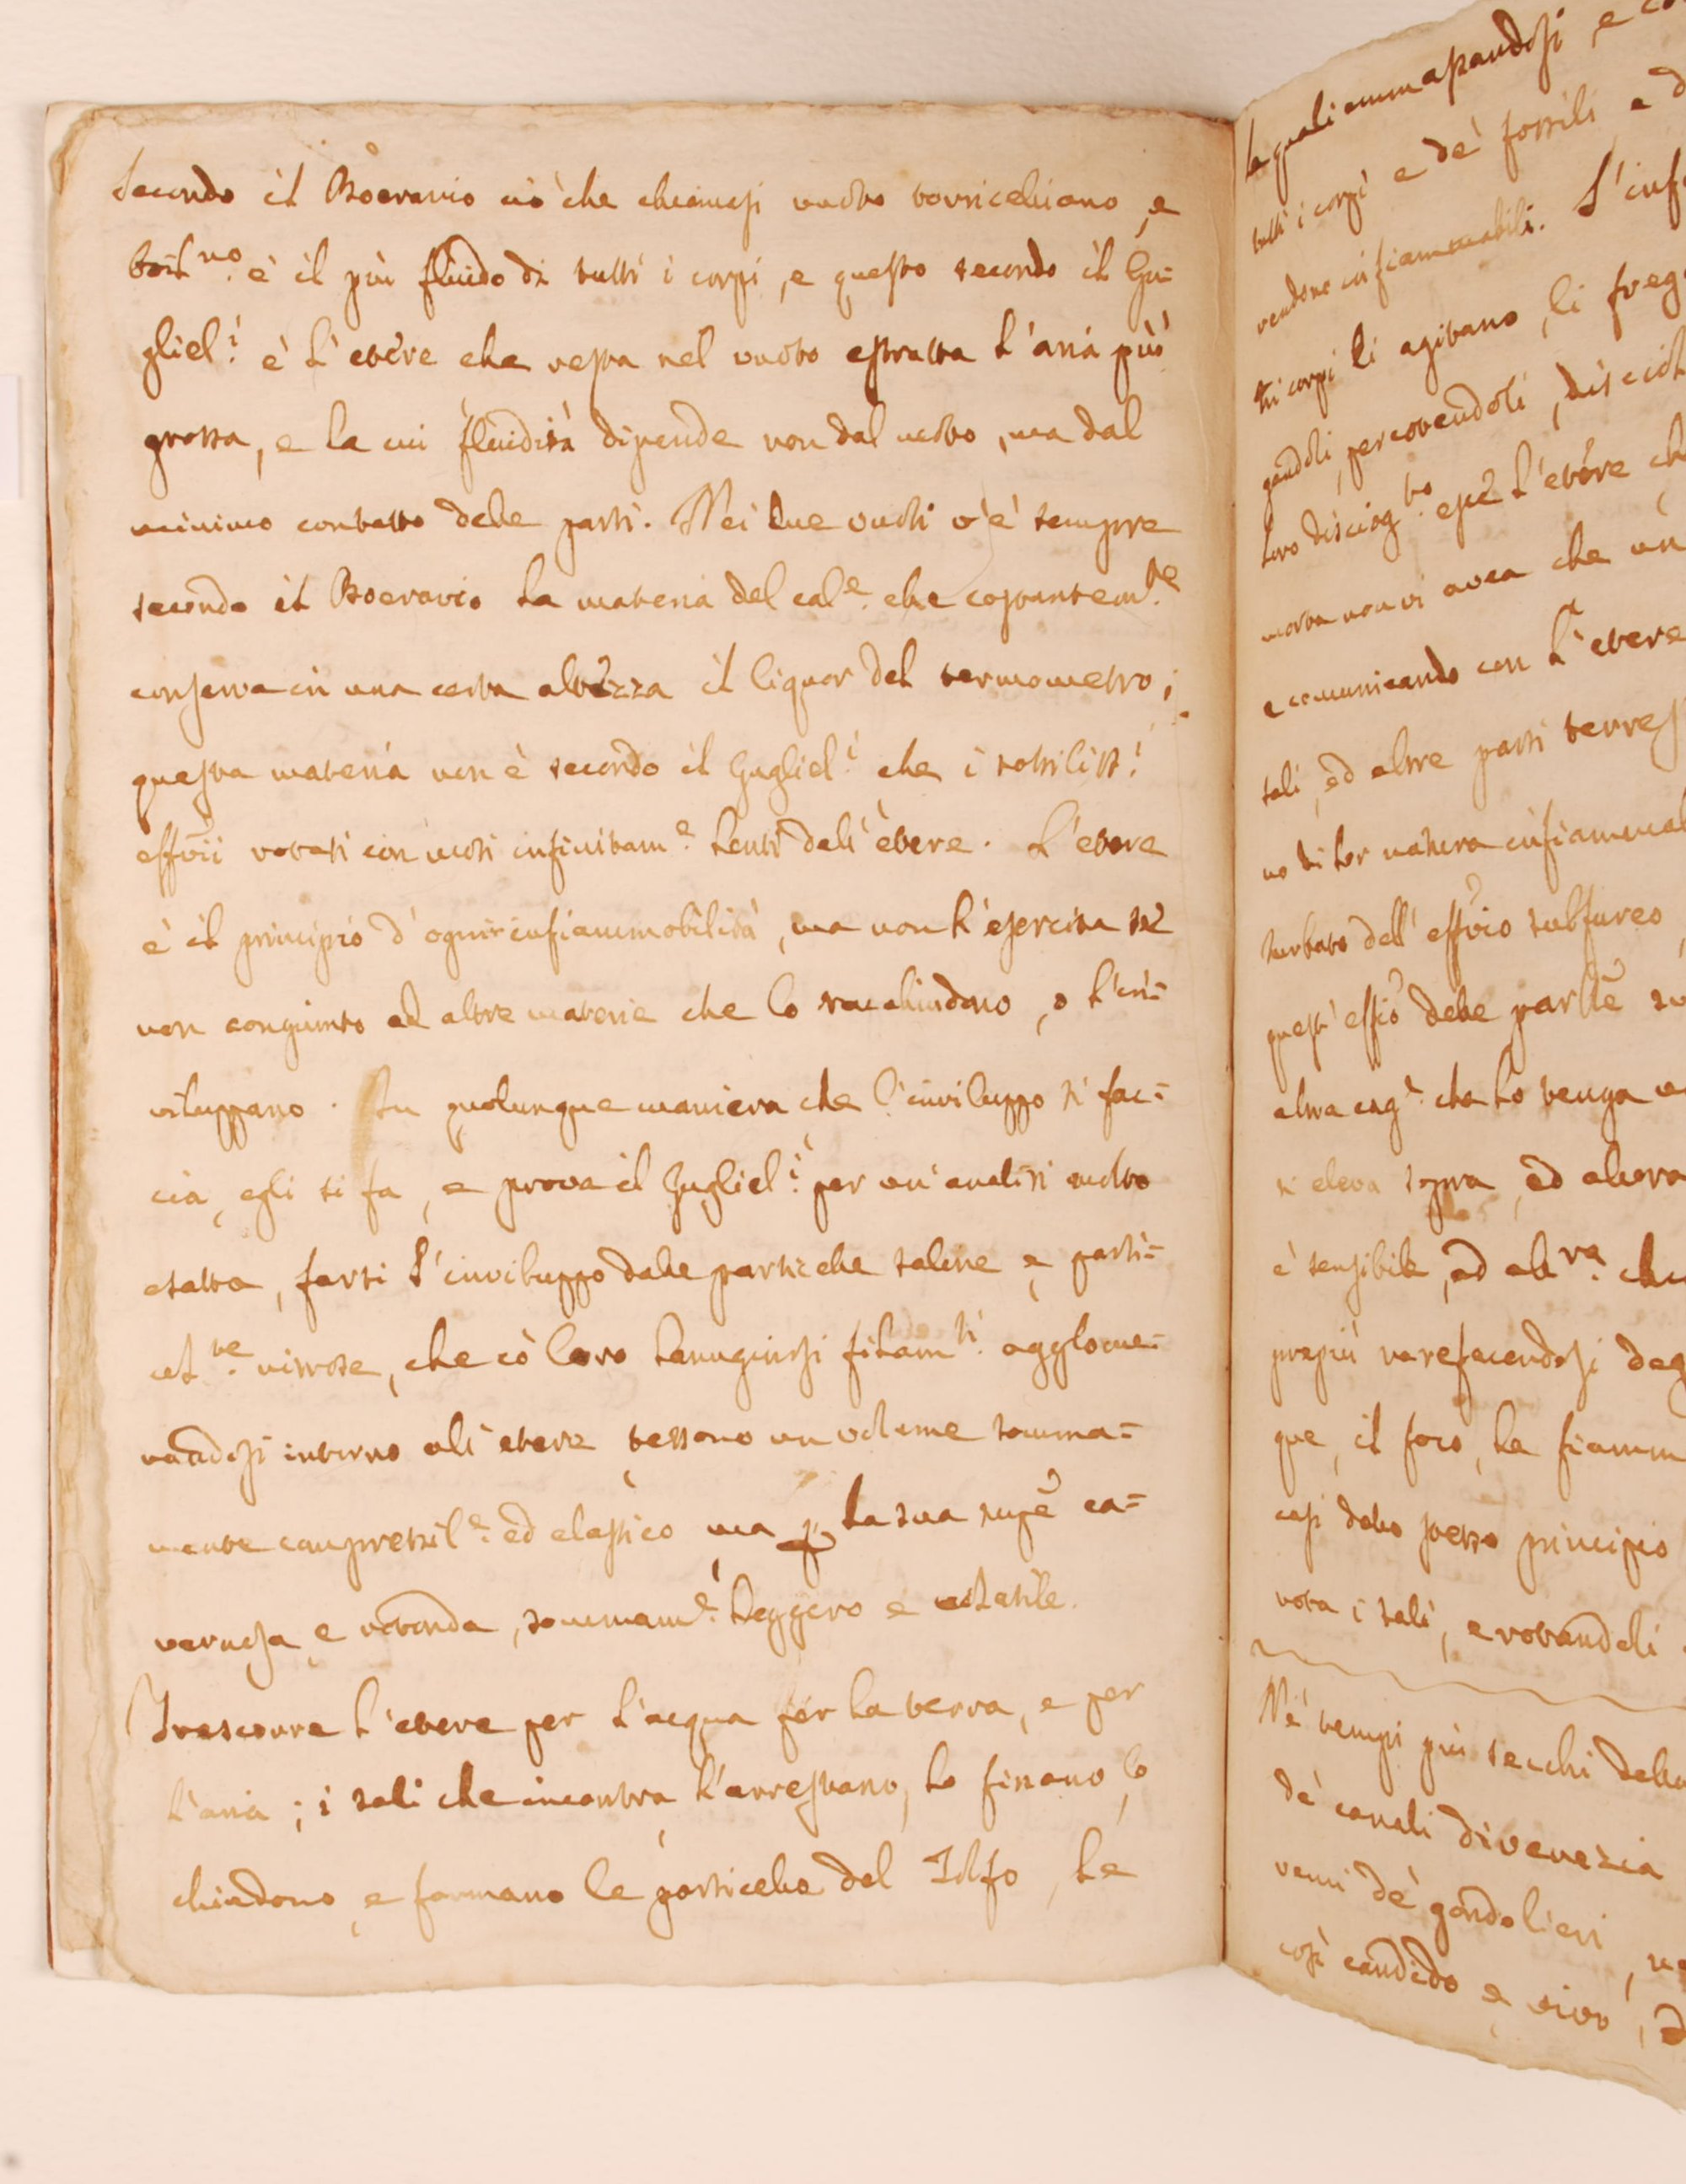 Secondo il Boeravio ciò che chiamasi vuoto torricelliano, e
boil.no è il più fluido di tutti i corpi, e questo secondo il Gu=
gliel.i è l'etere che resta nel vuoto estratta l'aria più
grossa, e la cui fluidità dipende non dal moto, ma dal
minimo contatto delle parti. Nei due vuoti v'è sempre
secondo il Boeravio la materia del cal.e che costantem.te
conserva in una certa altezza il liquor del termometro;
questa materia non è secondo il Gugliel.i che i sottiliss.i
effluvi rotati con moti infinitam.e lenti dall'etere. L'etere
è il principio d'ogni infiammabilità, ma non l'esercita se
non congiunto ad altre materie che lo racchiudono, o l'in=
viluppano. In qualunque maniera che l'inviluppo si fac=
cia, egli si fa, e prova il Gugliel.i per un'analisi molto
esatta, farsi l'inviluppo dalle particelle saline e parti=
col.te nitrose, che cò loro lanuginosi filam.ti agglome=
randosi intorno all'etere tessono un volume somma=
mente compressil.e ed elastico ma p la sua supe ca=
vernosa e rotonda, sommam.e leggero e volatile.
Trascorre l'etere per l'acqua per la terra, e per
l'aria; i sali che incontra l'arrestano, lo fissano, lo
chiudono, e formano le particelle del Solfo, le
le quali ammassandosi, e
tutti i corpi e de' fossili e
rendono infiammabili. L'inf
tri corpi li agitano, li freg
gandoli, percotendoli, disciol
loro disciog.to epe l'etere ch
morta non vi avea che un
e comunicando con l'etere
sali, ed altre parti terres
no di lor natura infiammab
turbato dell'effluvio sulfureo
quest' delle parti
altra cag. che lo tenga
si eleva sopra, ed allora
è sensibile, ed alt.ra
propiù rarefacendosi dag
que, il foco, la fiamm
casi dello stesso principio
rota i sali, e rotandoli
Ne' tempi più secchi della
de' canali di venezia
remi de' gondolieri,
così candido e vivo,